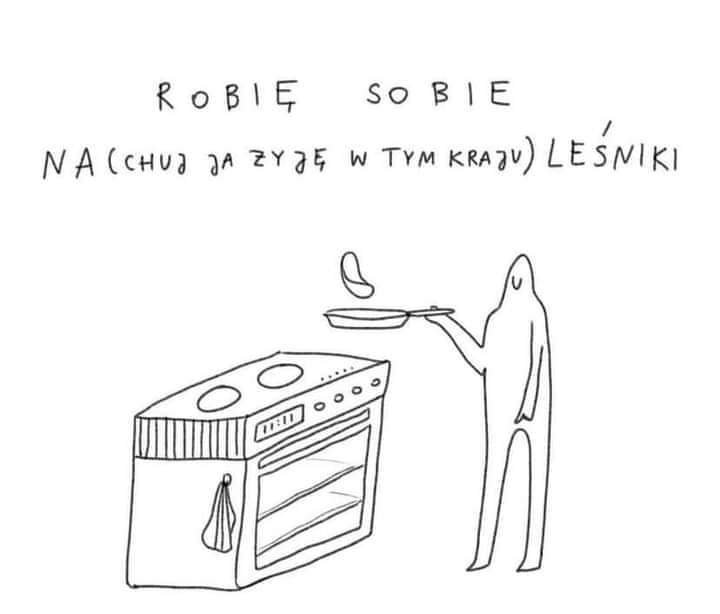 ROBIĘ SOBIE
NA(CHUJ JA ŻYJĘ W TYM KRAJU)LEŚNIKI